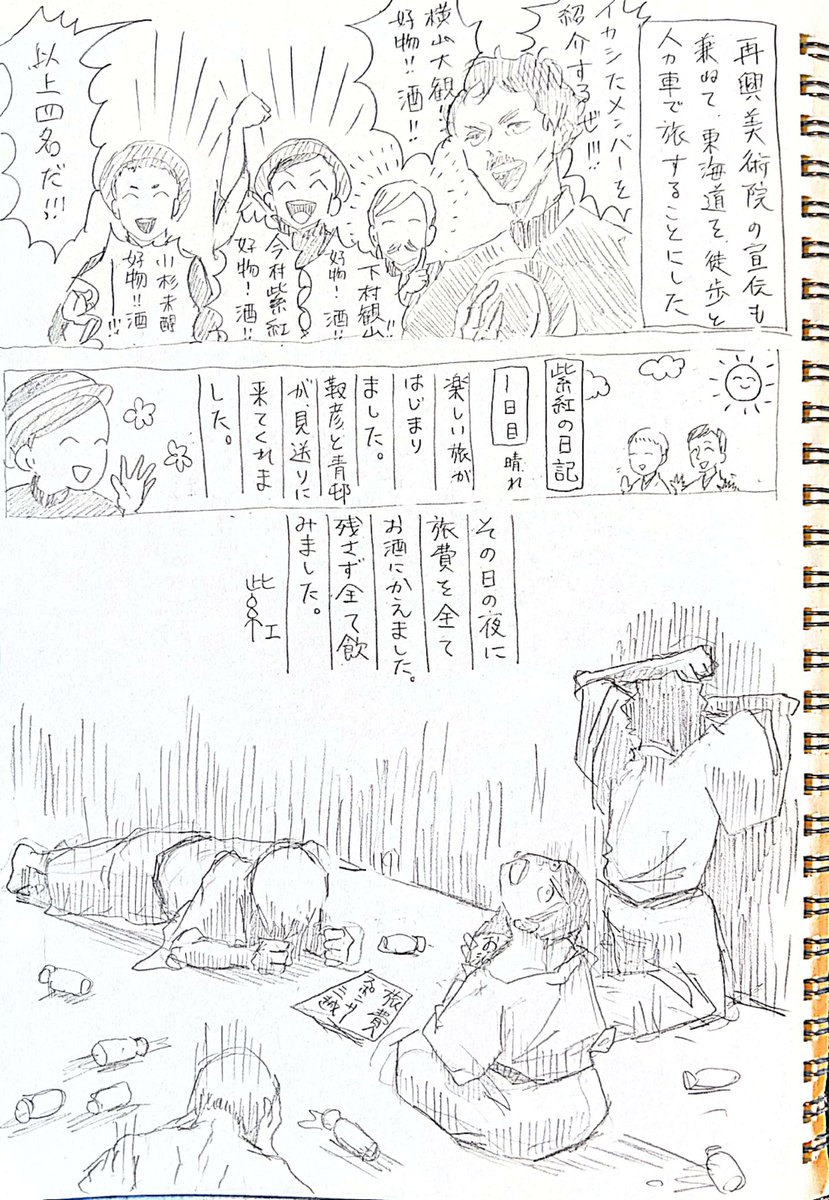 再興美術院の宣伝も
兼ねて、東海道を、徒歩と
人力車で旅することにした
イカシたメンバーを
紹介するぜ!!!
横山大観!!
好物!!酒!!
下村観山!!
好物!酒!!
今村紫紅!
好物!酒!!
小杉未醒
好物!!酒ー!!
以上四名だ!!!
紫紅の日記
1日目 晴れ
楽しい旅が
はじまり
ました。
靫彦と青邨
が、見送りに
来てくれま
した。
その日の夜に
旅費を全て
お酒にかえました。
残さず全て飲
みました。
紫紅
お酒
旅費
三越